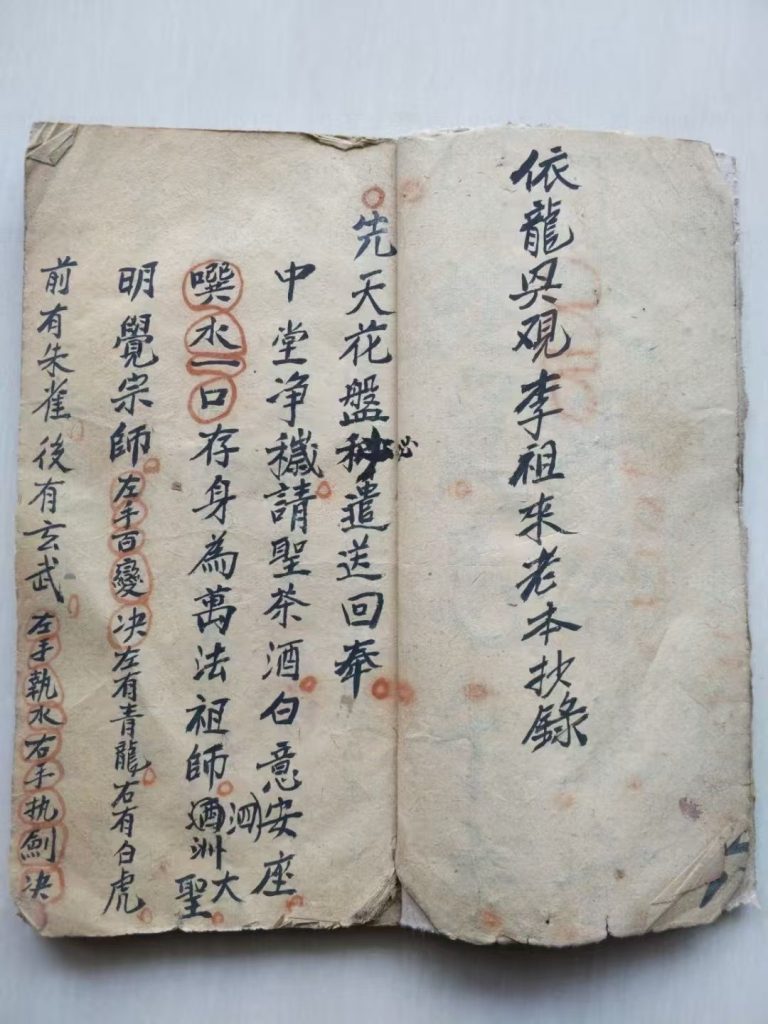 依龍覌李祖來老本抄錄
先天花盤秘必遣送回奉
中堂净穢請聖茶酒白意安座
噀水一口存身為萬法祖師酒(泗)洲大聖
明覺宗師左手百變决左有青龍右有白虎
前有朱雀後有玄武左手執水右手执劍决